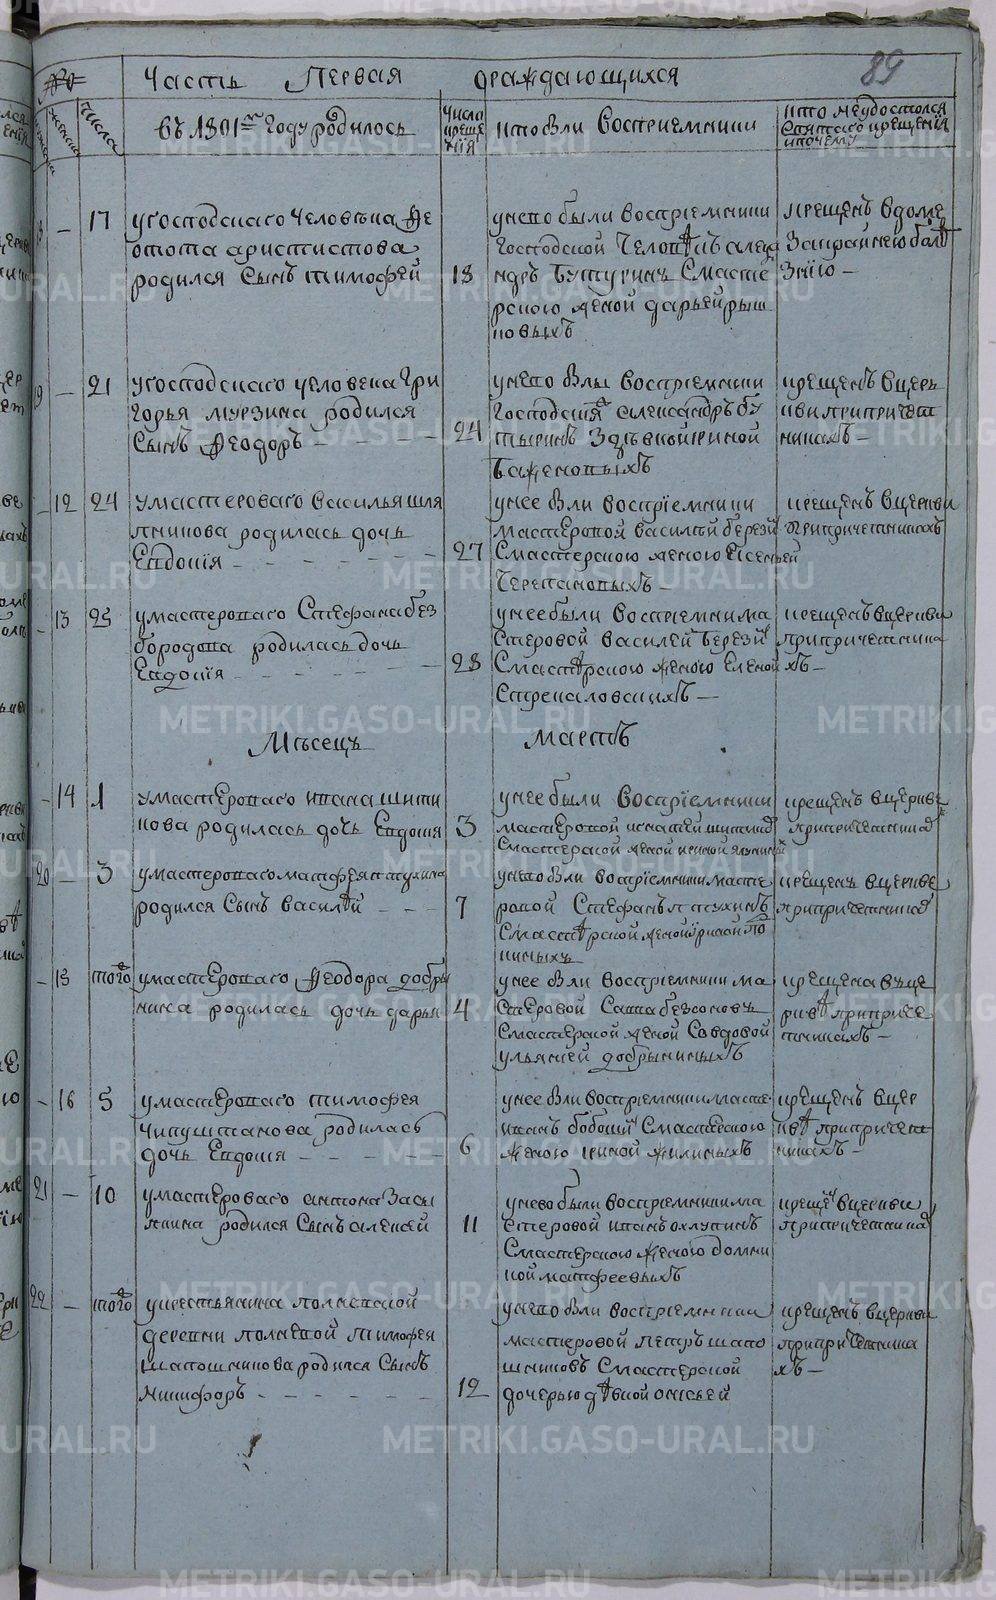 89
Часть Первая ораждающихся
№
числа
въ 1801м Году родилось
число креще нїя
кто были Восприемники
кто неудостоился Святаго крещенїя и почему
18 — 17
угосподскаго человѣка Фе
отота аристистова
родился сынъ тимофей
18
унево были восприемники
Господской человѣкъ алекса
ндръ Бутуринъ Смасте
рскою женой дарьей рыш
ковыхъ
крещенъ вдоме
Закрайнею боле
Знїю —
19 — 21
угосподскаго человека Гри
Горья мурзина родился
Сынъ Феодоръ
24
унево были восприемники
Господский александръ бу
тыринъ Здѣвкой ириной
Баженовыхъ
крещенъ вцерь
кви при причет
никахъ —
— 12 24
умастероваго василья шля
пникова родилась дочь
Евдокїя
27
унее были восприемники
мастеровой василий берези
Смастерскою женою Ксеньей
Черепановыхъ —
крещенъ вцеркви
при причетникахъ
— 13 25
умастероваго Стефана без
бородова родилась дочь
Евдокїя
28
унее были восприемники ма
стеровой василей Берези
Смастерскою женою Еленой
Стрекаловскихъ —
крещенъ вцеркви
при причетника
хъ —
Мѣсецъ Мартъ
— 14 1
умастероваго ивана шити
кова родилась дочь Евдокия
3
унее были восприемники
мастеровой игнатей
Смастерской женой
крещенъ вцеркве
при причетника
20 — 3
умастероваго матфея патухина
родился сынъ василѣй
7
унево были восприемники масте
ровой Стефанъ патухинъ
Смастерской женой
крещенъ вцеркве
при причетника
— 15 того
умастероваго Феодора добры
нина родилась дочь дарья
4
унее были восприемники ма
стеровой Сава безсоновъ
Смастерской женой Совдовой
ульяней добрыниныхъ
крещена въце
рквѣ при приче
тникахъ —
— 16 5
умастероваго тимофея
Чипуштанова родилась
дочь Евдокия
6
унее были восприемники мастер
иванъ бобошин Смастерскою
женою ириной жилиныхъ
крещенъ вцер
квѣ при причет
никахъ —
21 — 10
умастероваго антона Засы
пкина родился Сынъ алексей
11
унево были восприемники ма
стеровой иванъ охлупинъ
Смастерскою женою домни
кой матфеевыхъ
крещен вцеркви
при причетника
22 — того
укрестьянина полевской
деревни полдневой тимофея
шапошникова родился Сынъ
никифоръ
12
унево были восприемники
мастеровой петръ шапо
шниковъ Смастерской
дочерью дѣвкой онисьей
крещенъ вцеркви
при причетника
хъ —